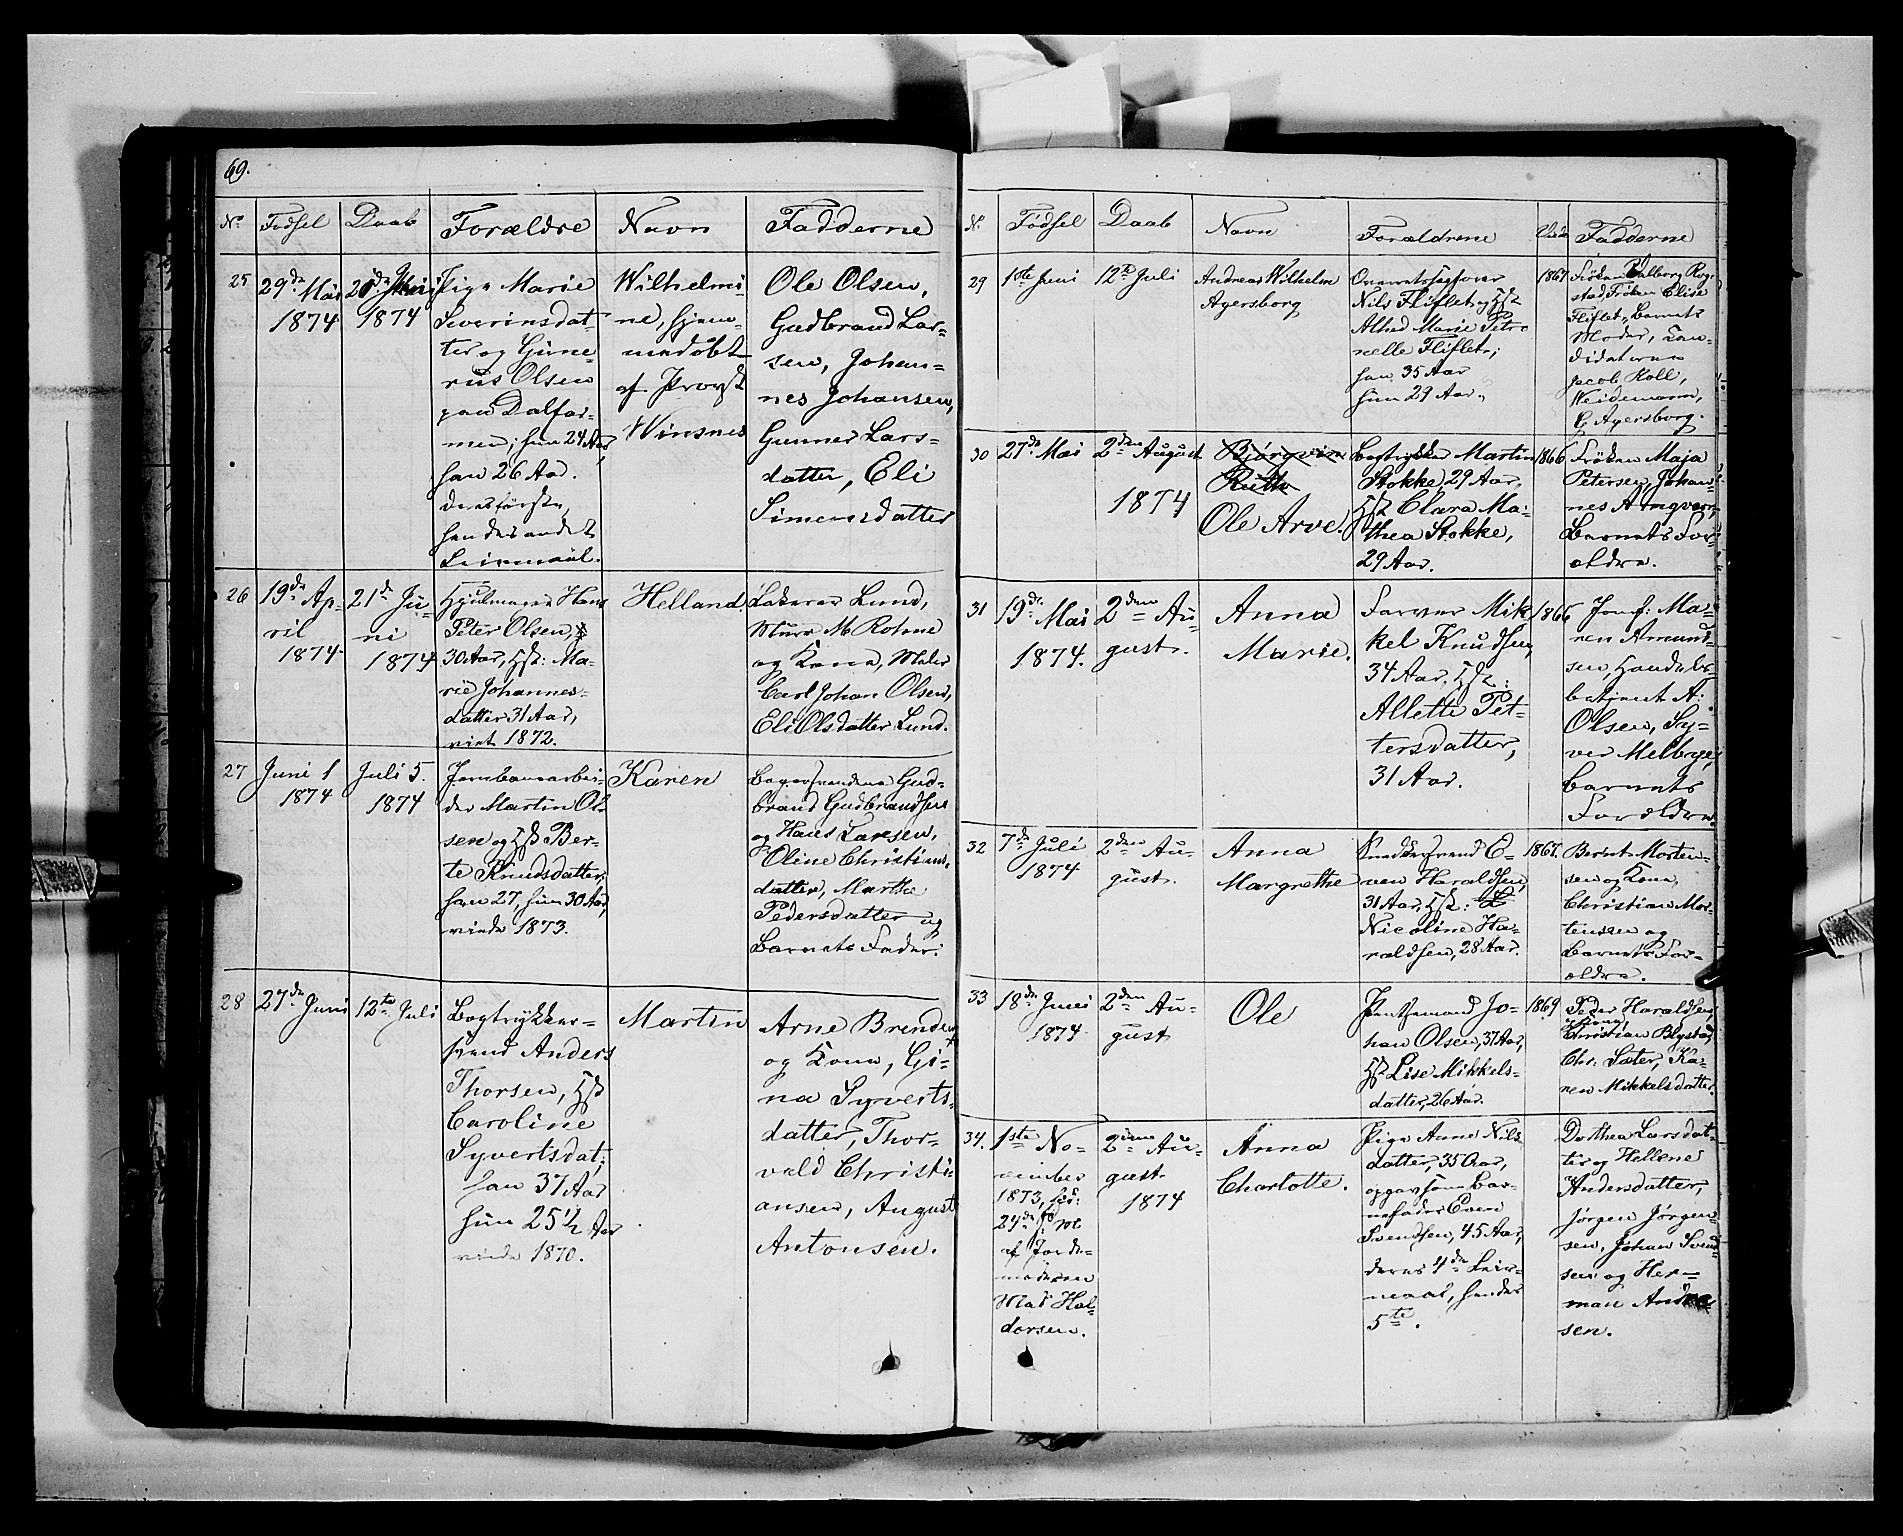 69.
No Fødsel Daab Forældre Navn Fadderne
25
29de Mai
1874
20de Juni
1874
Pige Marie
Severinsdat-
ter og Gune-
rius Olsen
paa Dalfar-
men; hun 24 Aar,
han 26 Aar.
deres første,
hendes andet
Leiermaal.
Wilhelmi-
ne, hjem-
medøbt
af Provst
Winsnes
Ole Olsen,
Gudbrand Lar-
sen, Johan-
nes Johansen,
Gunner Lars-
datter, Eli
Simensdatter
26
19de Ap-
ril
1874
21de Ju-
ni
1874
Hjulmager Hans
Peter Olsen,
30 Aar, Hst: Ma-
rie Johannes-
datter 31 Aar,
viet 1872.
Helland.
Lakerer Lund,
Murer M. Rohne
og Kone, Maler
Carl Johan Olsen,
Eli Olsdatter Lund.
27
Juni 1
1874
Juli 5.
1874
Jernbanearbei-
der Martin Ol-
sen og Hst Ber-
te Knudsdatter,
han 27, hun 30 Aar,
viede 1873.
Karen
Bagersvendene Gud-
brand Gudbrandsen
og Hans Larsen,
Oline Christians-
datter, Marthe
Pedersdatter og
Barnets Fader.
28
27de Juni
12te Juli
Bogtrykker-
svend Anders
Thorsen, Hst
Caroline
Syvertsdat.
han 37 Aar
hun 25 1/2 Aar
viede 1870.
Martin
Arne Brenden
og Kone, Gi-
na Syverts-
datter, Thor-
vald Christi-
ansen, August
Antonsen.
N. Fødsel Daab Navn Forældrene Viede Fadderne
29
1ste Juni
12te Juli
Andreas Wilhelm
Agersborg
Overretssagfører
Nils Fliflet og Hst
Alhed Marie Petro-
nelle Fliflet;
han 35 Aar
hun 29 Aar.
1867
Frøken Valborg Rog-
stad, Frøken Elise
Fliflet, Barnets
Moder, Can-
didaterne
Jacob Roll,
Weidemann,
G. Agersborg.
30
27de Mai
2den August
1874
Bjørgvin
Ruttle
Ole Arve.
Bogtrykker Martin
Stokke, 29 Aar,
Hst Clara Ma-
thea Stokke,
29 Aar.
1866
Frøken Maja
Petersen, Johan-
nes
Barnets For-
ældre.
31
19de Mai
1874.
2den Au-
gust.
Anna
Marie.
Farver Mik-
kel Knudsen,
34 Aar, Hst:
Allette Pet-
tersdatter,
31 Aar.
1866
Jomf: Ma-
ren Amund-
sen, Handels-
betjent A.
Olsen, Sy-
ver Melbye,
Barnets
Forældre.
32
7de Juli
1874
2den Au-
gust.
Anna
Margrethe
Snedkersvend E-
ven Haraldsen,
31 Aar, Hst:
Nicoline Ha-
raldsen, 28 Aar.
1867.
Bernt Morten-
sen og Kone,
Christian Mor-
tensen og
Barnets For-
ældre.
33
18de Juni
1874
2den Au-
gust
Ole
Jo-
han Olsen, 37 Aar,
Hst Lise Mikkels-
datter, 26 Aar.
1869
Peder Haraldsen
og Kone,
Christian Blystad,
Chr. Sæter, Ka-
ren Mikkelsdatter.
34.
1ste No-
vember
1873,
24de
af Jorde-
moderen
Mad Hal-
dorsen.
2den Au-
gust
1874
Anna
Charlotte.
Pige Anne Nils-
datter, 35 Aar,
opgav som Bar-
nefader Even
Svendsen, 45 Aar,
deres 4de Leier-
maal, hendes
5te.
Dorthea Larsdat-
ter og Hellene
Andersdatter,
Jørgen Jørgen-
sen, Johan Svend-
sen og Her-
man Andre-
sen.